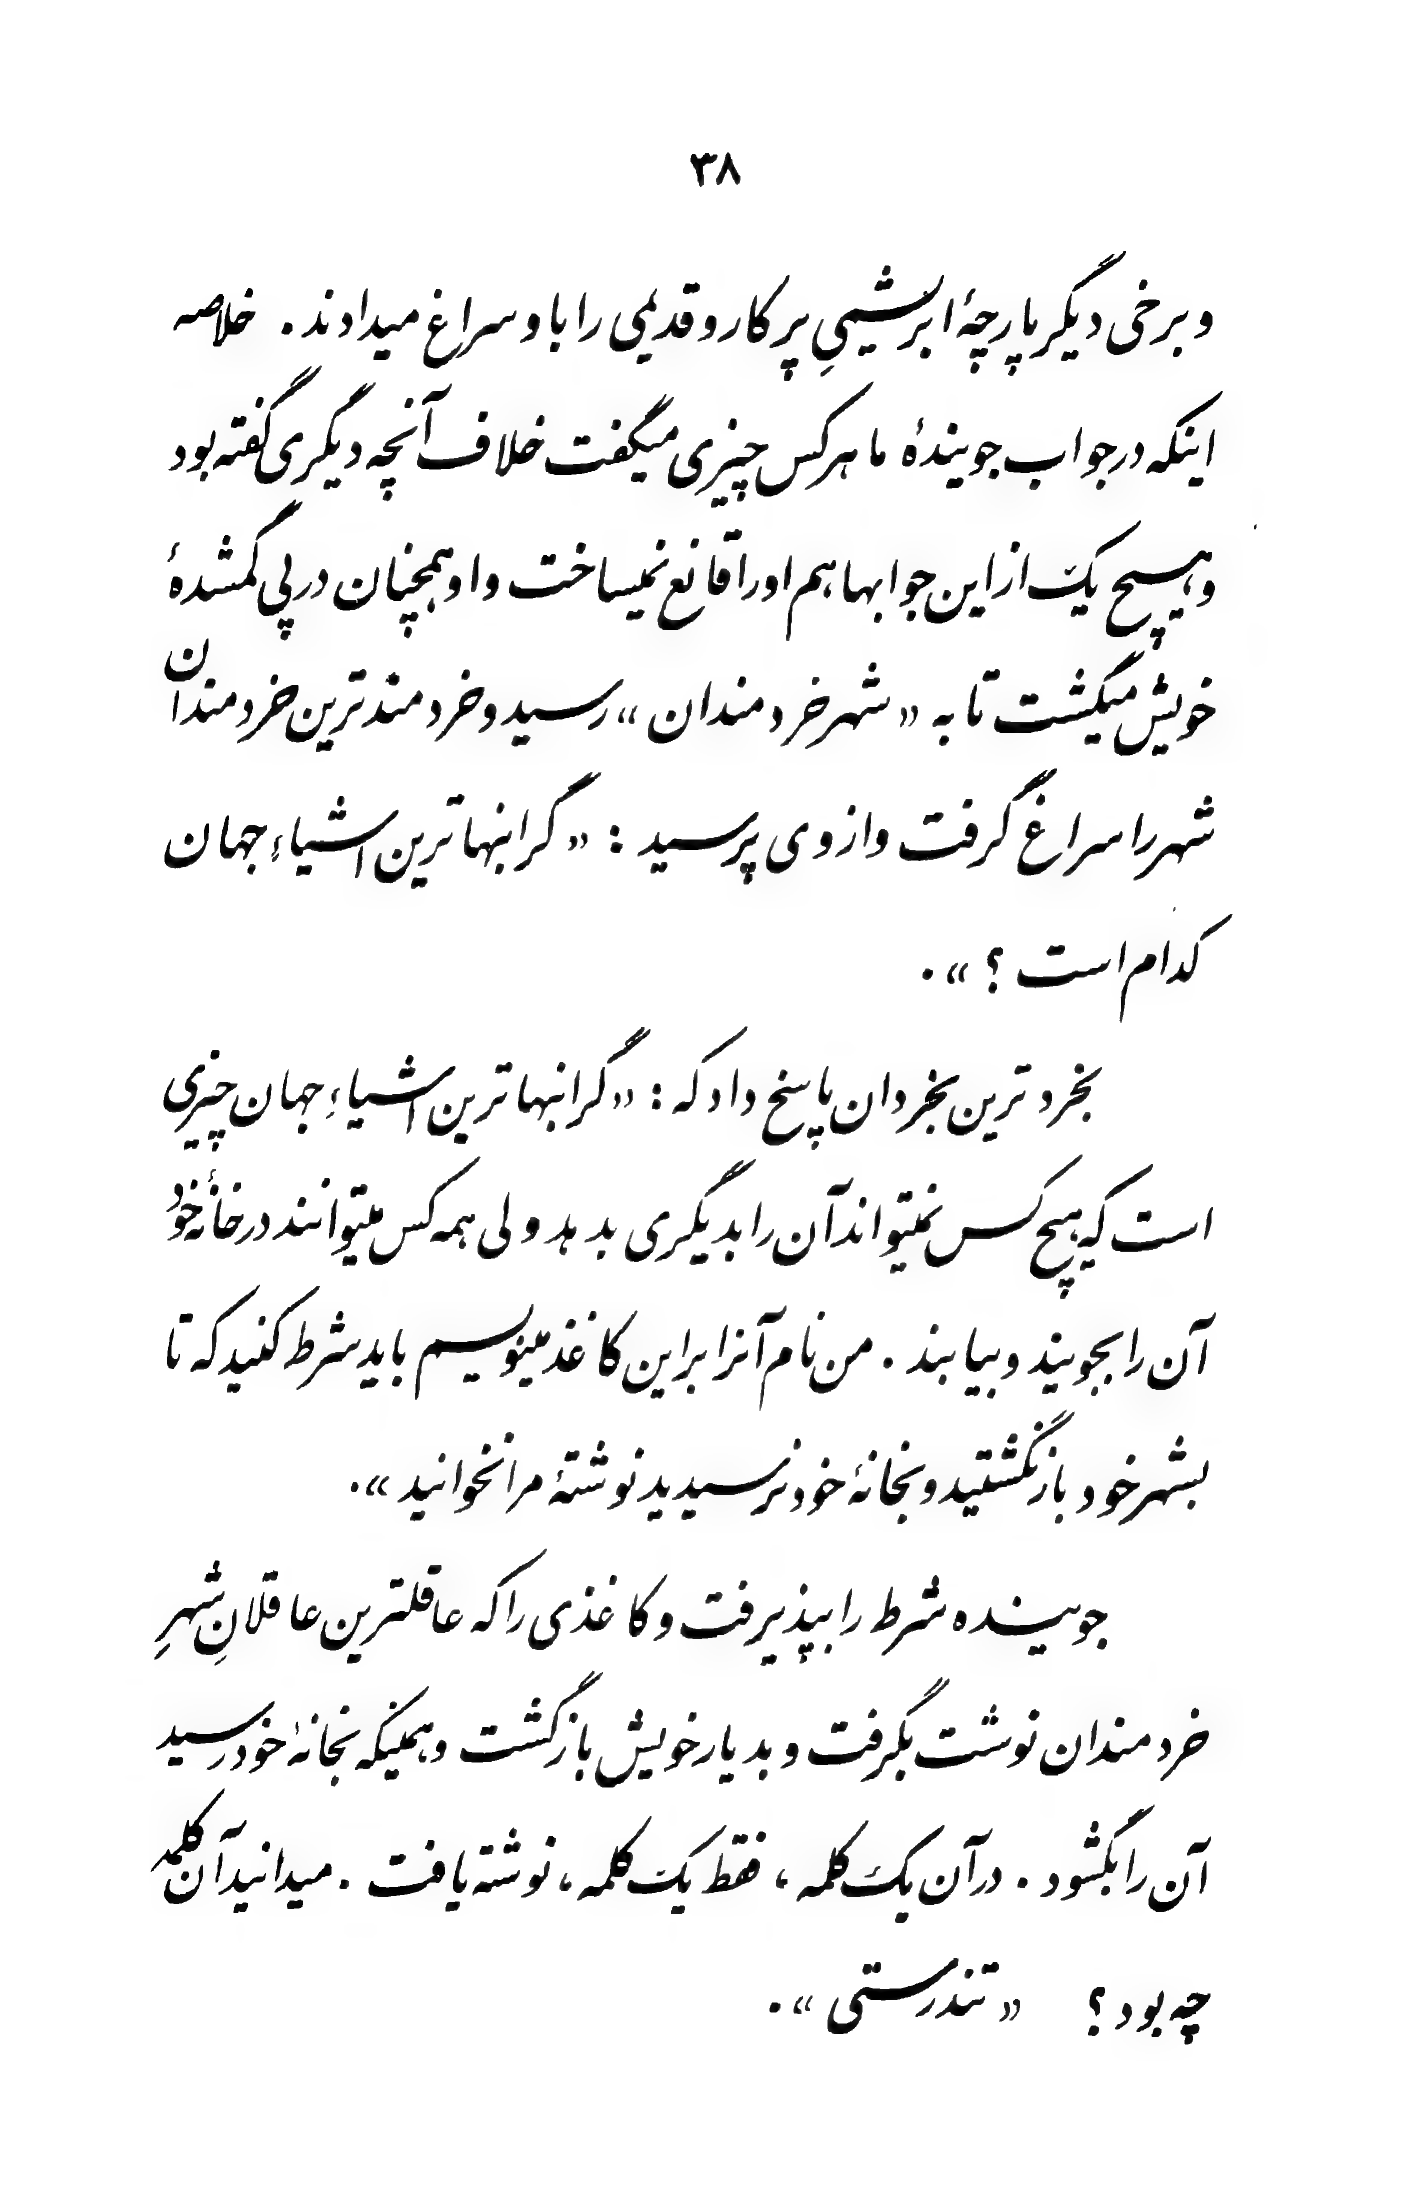 ۳۸
و برخی دیگر پارچهٔ ابریشمیِ پر کار و قدیمی را باو سراغ میدادند . خلاصه
اینکه در جواب جویندهٔ ما هر کس چیزی میگفت خلاف آنچه دیگری گفته بود
و هیچ یک از این جوابها هم او را قانع نمیساخت و او همچنان در پی گمشدهٔ
خویش میگشت تا به « شهر خردمندان » رسید و خردمند ترین خردمندان
شهر را سراغ گرفت و از وی پرسید : « گرانبها ترین اشیاءِ جهان
کدام است ؟ » .
بخرد ترین بخردان پاسخ داد که : « گرانبها ترین اشیاءِ جهان چیزی
است که هیچ کس نمیتواند آن را بدیگری بدهد ولی همه کس میتوانند در خانهٔ خود
آن را بجویند و بیابند . من نام آنرا براین کاغذ مینویسم باید شرط کنید که تا
بشهر خود باز نگشتید و بخانهٔ خود نرسیدید نوشتهٔ مرا نخوانید » .
جوینده شرط را بپذیرفت و کاغذی را که عاقلترین عاقلانِ شهرِ
خردمندان نوشت بگرفت و بدیار خویش بازگشت و همینکه بخانهٔ خود رسید
آن را بگشود . در آن یک کلمه ، فقط یک کلمه ، نوشته یافت . میدانید آن کلمه
چه بود ؟ « تندرستی » .